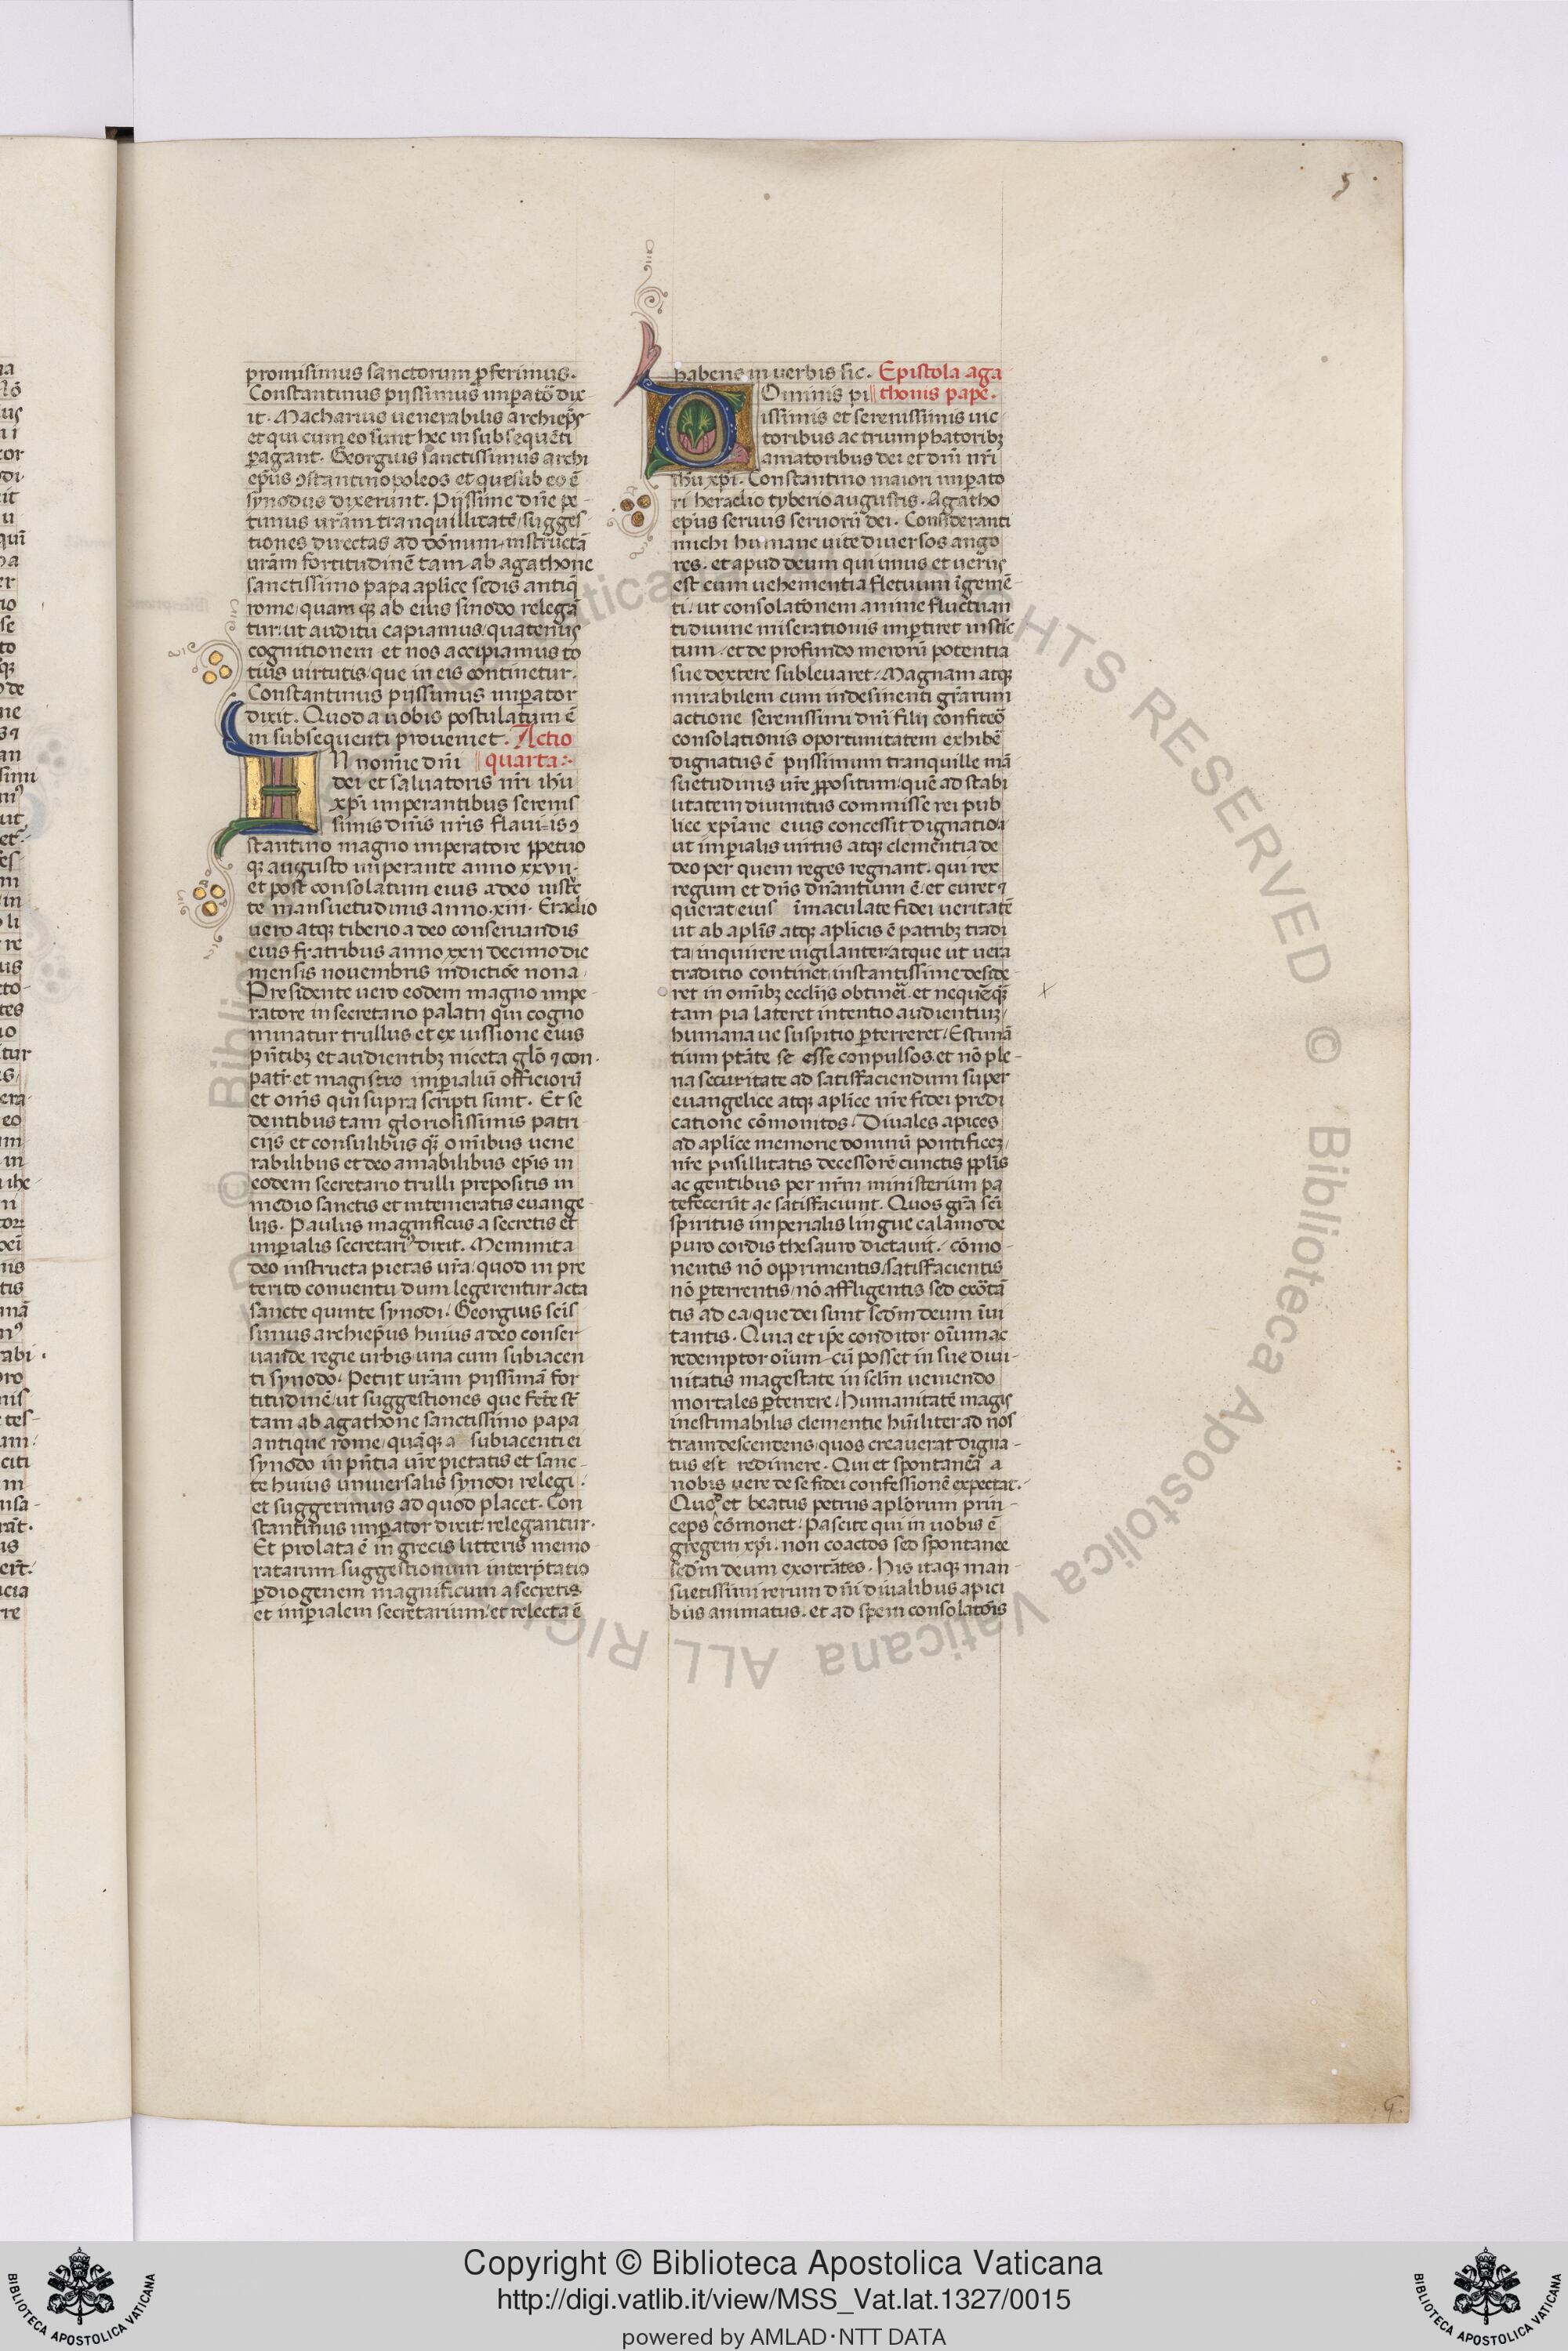 5
promisimus sanctorum ꝓferimus.
Constantinus pijssimus imꝑatō dix
it. Macharius uenerabilis archiep̄s
et qui cum eo sunt hec in subsequēti
ꝑagant. Georgius sanctissimus archi
ep̄us ɔstantinopoleos et que sub eo ē
synodus dixerunt. Pijssime dn̄e pe-
timus ur̄am tranquillitatē sugges
tiones directas ad dōnum instructā
ur̄am fortitudinē tam ab agathone
sanctissimo papa apl̄ice sedis antiq̄
rome quam qꝫ ab eius sinodo relegā
tur ut auditū capiamus quatenus
cognitionem et nos accipiamus to
tius uirtutis que in eis continetur.
Constantinus pijssimus imꝑator
dixit. Quod a uobis postulatum ē
in subsequenti proueniet. Actio
IN nomīe dn̄i quarta:
dei et saluatoris nr̄i ihū
xp̄i imperantibus sereniſ
simis dn̄is nr̄is flauiis ɔ
stantino magno imperatore ꝑpetuo
qꝫ augusto imperante anno xxvii.
et post consolatum eius a deo instr̄c
te mansuetudinis anno xiii. Eraclio
uero atqꝫ tiberio a deo conseruandis
eius fratribus anno xxii decimo die
mensis nouembris indictiōe nona
Presidente uero eodem magno impe-
ratore in secretario palatii qui cogno
minatur trullus et ex iussione eius
pn̄tibꝫ et audientibꝫ niceta glō ⁊ con.
patr̄ et magistro imꝑialiū officiorū
et om̄s qui supra scripti sunt. Et se
dentibus tam gloriosissimis patri
cijs et consulibus qꝫ om̄ibus uene
rabilibus et deo amabilibus ep̄is in
eodem secretario trulli prepositis in
medio sanctis et intemeratis euange-
liis. Paulus magnificus a secretis et
imꝑialis secretariꝰ dixit. Meminit a
deo instructa pietas ur̄a quod in pre
terito conuentu dum legerentur acta
sancte quinte synodi. Georgius sc̄is
simus archiep̄us huius a deo conser
uande regie urbis una cum subiacen
ti synodo. Petiit ur̄am pijssimā for
titudinē ut suggestiones que fc̄te st̄
tam ab agathone sanctissimo papa
antique rome quāqꝫ a subiacenti ei
synodo in pn̄tia ur̄e pietatis et sanc-
te huius uniuersalis synodi relegi.
et suggerimus ad quod placet. Con
stantinus imꝑator dixit relegantur.
Et prolata ē in grecis litteris memo
ratarum suggestionum interp̄tatio
ꝑ diogenem magnificum a secretis
et imꝑialem secretarium et relecta ē
habens in uerbis sic. Epistola aga
Ominis pi thonis pape.
issimis et serenissimis uic
toribus ac triumphatoribꝫ
amatoribus dei et dn̄i nr̄i
ihū xp̄i. Constantino maiori imꝑato
ri heraclio tyberio augustis. Agatho
ep̄us seruus seruorū dei. Consideranti
michi humane uite diuersos ango
res. et apud deum qui unus et uerus
est cum uehementia fletuum īgemē-
ti. ut consolatōnem anime fluctuan
ti diuine miserationis imꝑtiret instīc
tum et de profundo merorū potentia
sue dextere subleuaret. Magnam atqꝫ
mirabilem eum indesinenti gr̄arum
actione serenissimi dn̄i filij confiteō
consolationis oportunitatem exhibē
dignatus ē pijssimum tranquille mā
suetudinis ur̄e ꝓpositum quē ad stabi
litatem diuinitus commisse rei pub
lice xp̄iane eius concessit dignatio.
ut imꝑialis uirtus atqꝫ clementia de
deo per quem reges regnant. qui rex
regum et dn̄s dn̄antium ē et curet ⁊
querat eius īmaculate fidei ueritatē
ut ab apl̄is atqꝫ apl̄icis ē patribꝫ tradi
ta inquirere uigilanter atque ut uera
traditio continet instantissime deside
ret in om̄ibꝫ eccl̄ijs obtineri et nequēqꝫ
tam pia lateret intentio audientiuꝫ
humana ue suspitio ꝑterreret. Estimā
tium ptāte se esse conpulsos et nō ple-
na securitate ad satisfaciendum super
euangelice atqꝫ apl̄ice nr̄e fidei predi
catione cōmonitos. Diuales apices
ad apl̄ice memorie domnū pontificeꝫ
nr̄e pusillitatis decessorē cunctis ppl̄is
ac gentibus per nr̄m ministerium pa
tefecerūt ac satisfaciunt. Quos gr̄a sc̄i
spiritus imperialis lingue calamo de
puro cordis thesauro dictauit. cōmo-
nentis nō opprimentis satisfacientis
nō ꝑterrentis nō affligentis sed exortā
tis ad ea que dei sunt scd̄m deum īui
tantis. Quia et ip̄e conditor oīum ac
redemptor oīum cū posset in sue diui-
nitatis magestate in scl̄m ueniendo
mortales ꝑterrere humanitatē magis
inestimabilis clementie hūiliter ad nos
tram descendens quos creauerat digna-
tus est redimere. Qui et spontaneā a
nobis uere de se fidei confessionē expectat.
Quos et beatus petrus apl̄orum prin-
ceps cōmonet. Pascite qui in uobis ē
gregem xp̄i. non coactos sed spontanee
scd̄m deum exortātes. His itaqꝫ man
suetissimi rerum dn̄i diualibus apici
bus animatus. et ad spem consolatōis
Copyright © Biblioteca Apostolica Vaticana
http://digi.vatlib.it/view/MSS_Vat.lat.1327/0015
powered by AMLAD·NTT DATA